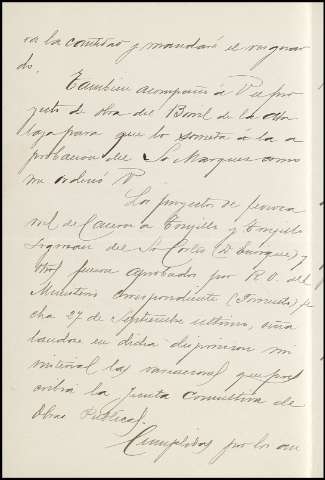 la cantidad y mandaré el resguar
do.
Tambien acompaño á V. el pro
yecto de obra del Barril de la Ata
laya para que lo someta á la a
probacion del Sr Marques como
me ordenó V.
Los proyectos de ferroca
rril de Caceres á Trujillo y Trujillo
Logrosán del Sr Cortés (D. Enrique) y
fueron aprobados por R. O. del
Ministerio Correspondiente (Fomento) fe
cha 27 de Septiembre último, seña
landose en dicha disposicion mi
nisterial las variaciones que pres
cribia la Junta Consultiva de
Obras Públicas.
Cumplidos por los